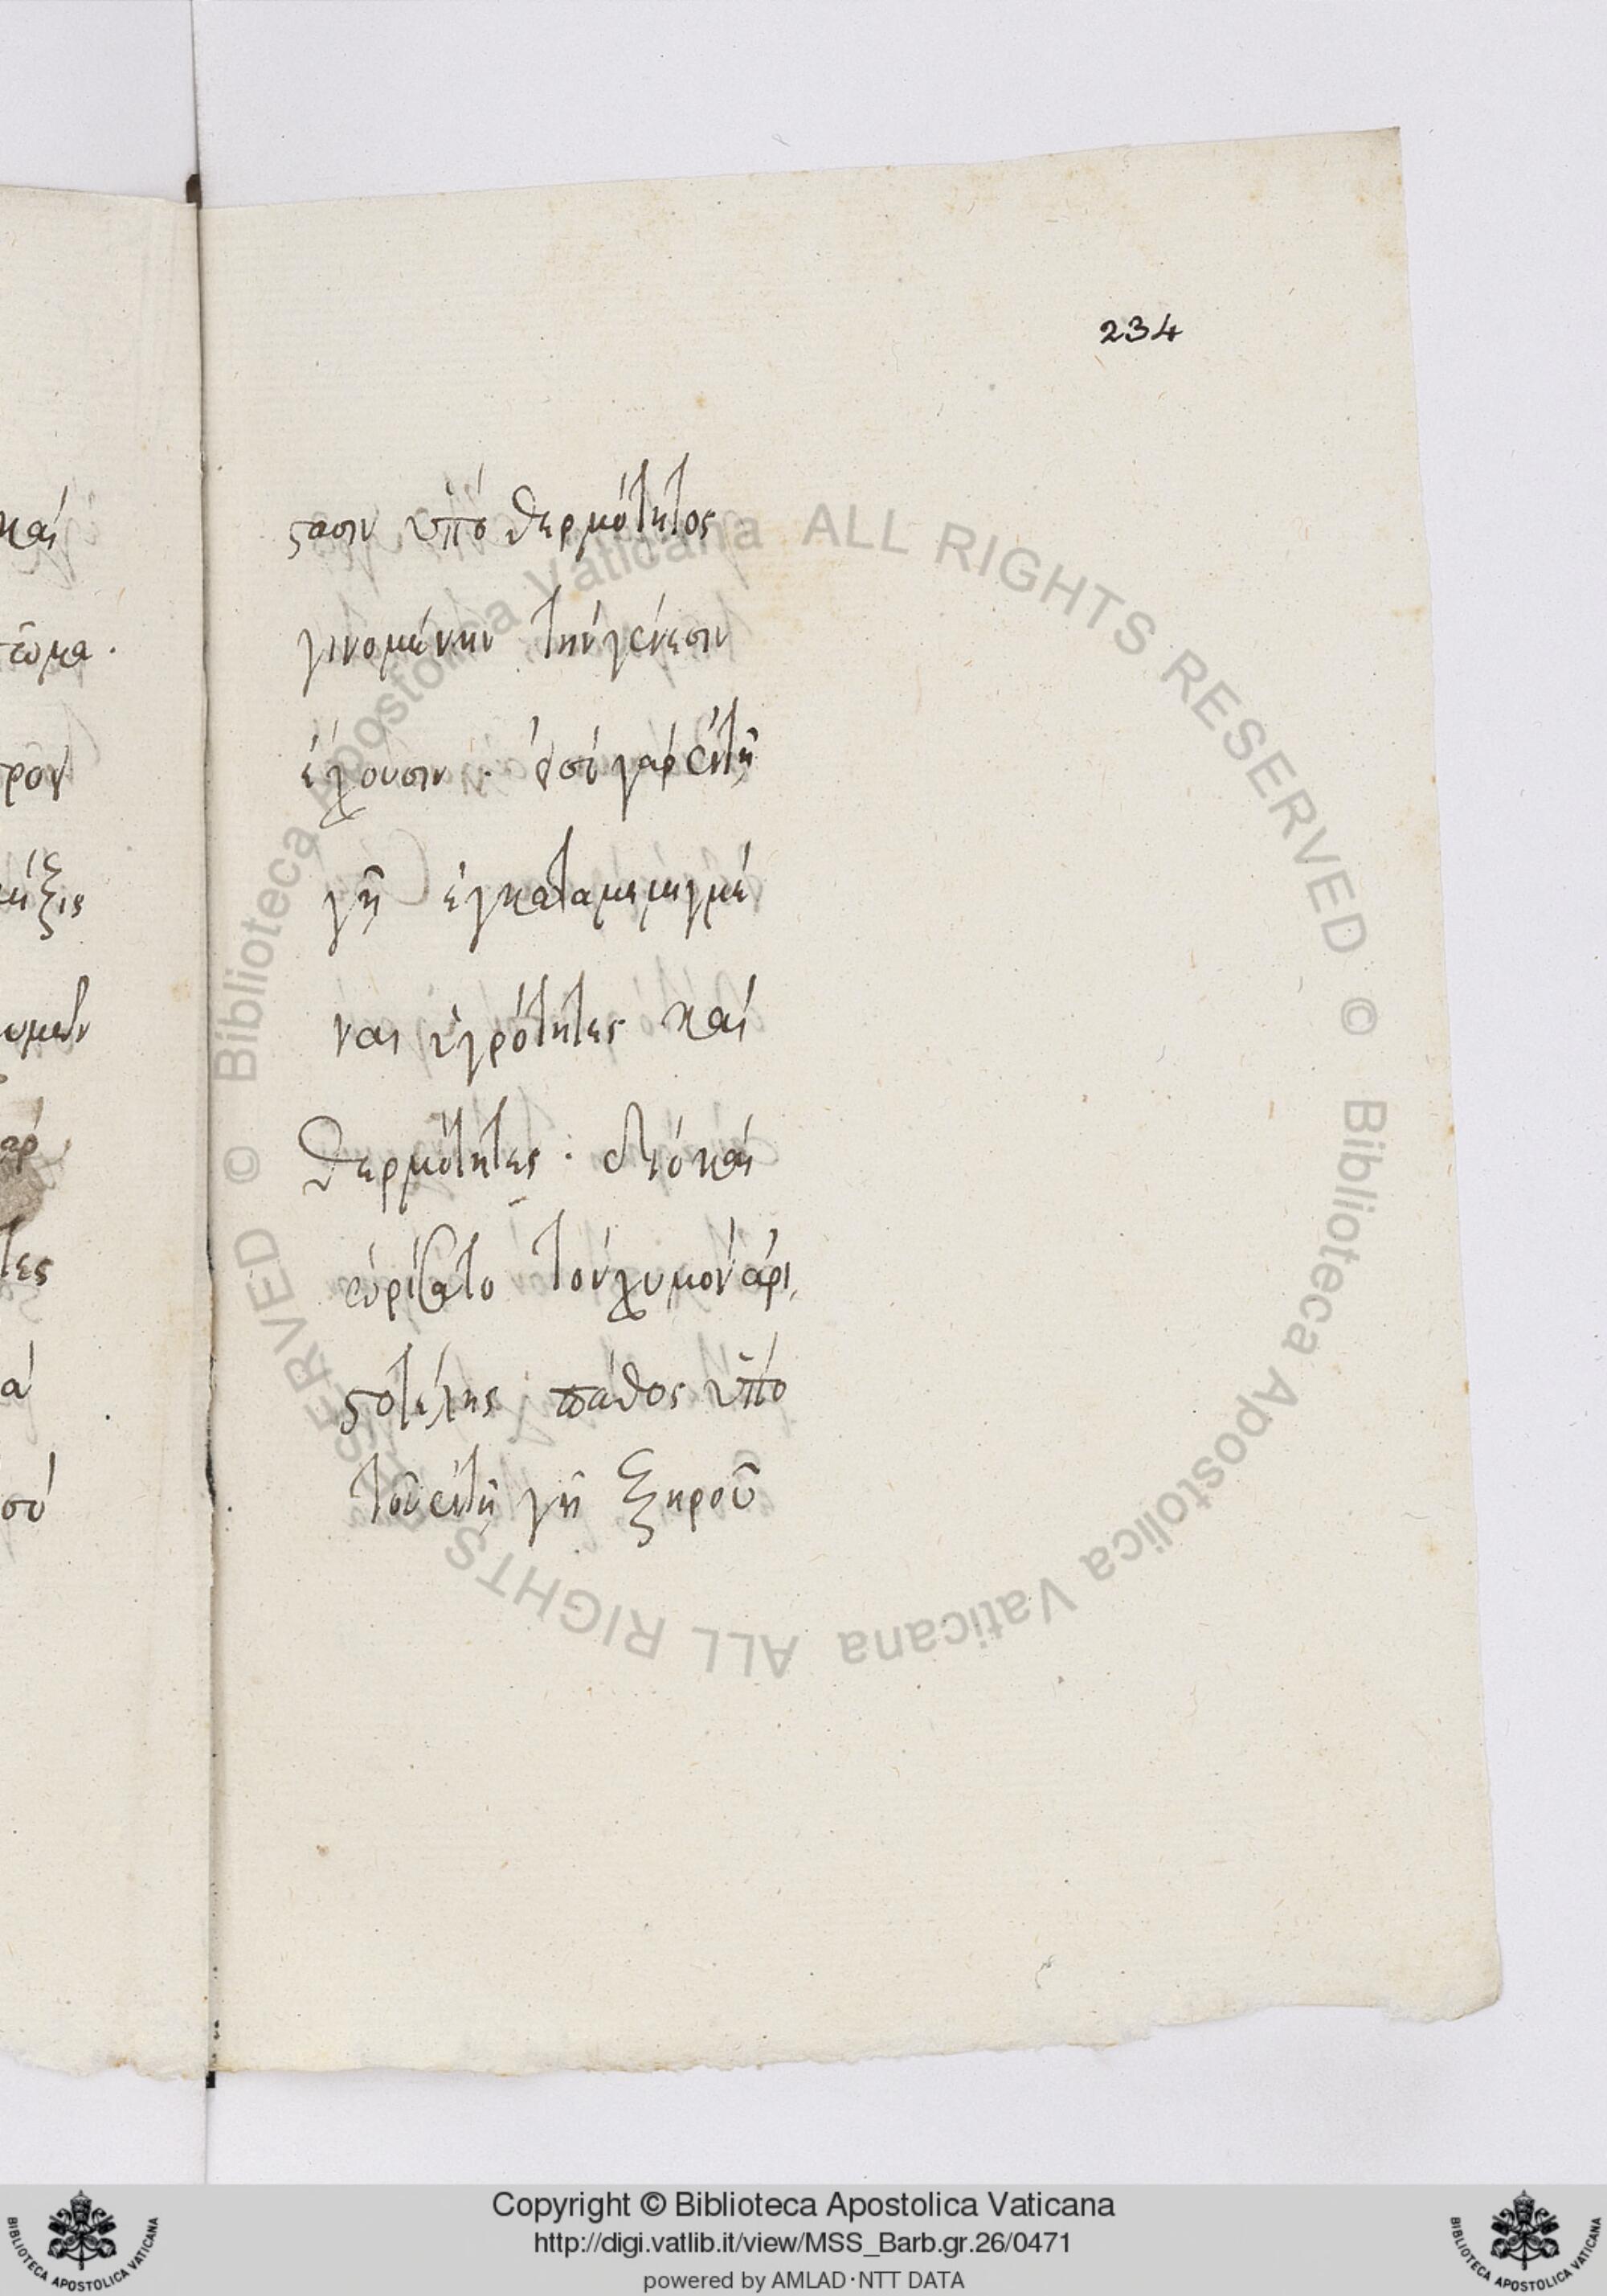 234
καί
στασιν ὑπό θερμότητος
γινομένην τήν γένεσιν
τωμα.
ἔχουσιν. εἰσί γάρ ἐν τῇ
ρον
γῇ ἐγκαταμεμιγμέ
ηξις
ναι ὑγρότητες καί
ωμεν
θερμότητες. διό καί
αρ
ὡρίσατο τόν χυμόν ἀρι
τες
στοτέλης πάθος ὑπό
ά
τοῦ ἐν τῇ γῇ ξηροῦ
σύ
© Biblioteca Apostolica Vaticana ALL RIGHTS RESERVED © Biblioteca Apostolica Vaticana ALL RIGHTS RESERVED
Copyright © Biblioteca Apostolica Vaticana
http://digi.vatlib.it/view/MSS_Barb.gr.26/0471
powered by AMLAD·NTT DATA
BIBLIOTECA APOSTOLICA VATICANA
BIBLIOTECA APOSTOLICA VATICANA